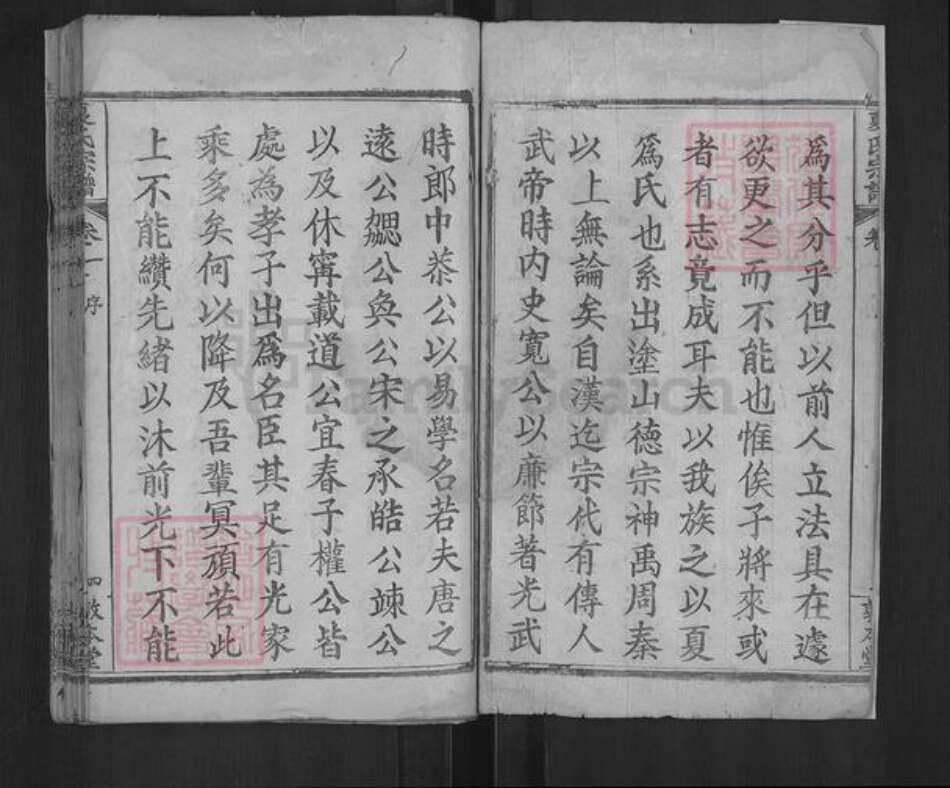 為其分乎但以前人立法具在遽
欲更之而不能也惟俟子將來或
者有志竟成耳夫以我族之以夏
爲氏也系出塗山德宗神禹周秦
以上無論矣自漢迄宗代有傳人
武帝時内史寬公以廉節著光武
時郎中恭公以易學名若夫唐之
遠公勰公奐公宋之承皓公竦公
以及休寗載道公宜春子權公皆
處為孝子出爲名臣其足有光家
乘多矣何以降及吾輩冥頑若此
上不能纘先緒以沐前光下不能
氏宗譜
卷一
序
四
敦本堂
夏氏宗譜
卷
FamilySearch